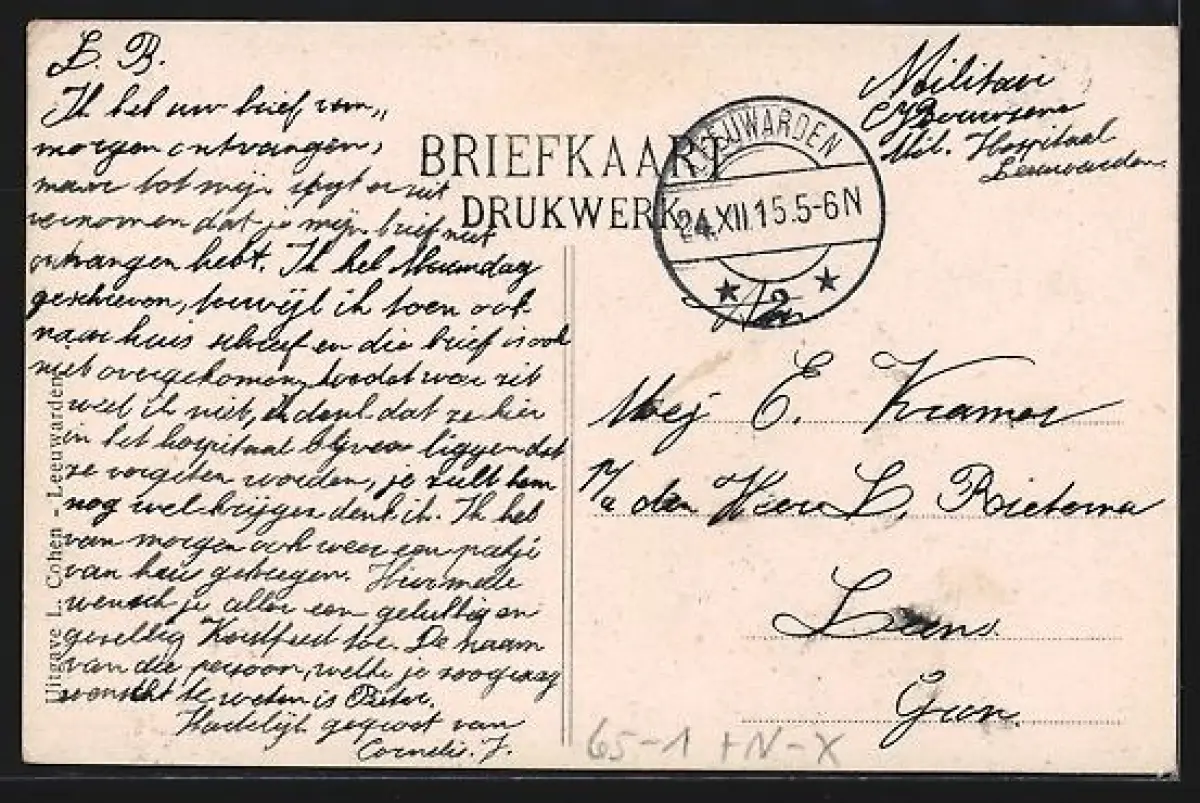 L. B.
Ik heb uw brief van„
morgen ontvangen,
maar tot mijn spyt er uit
vernomen dat je mijn brief niet
ontvangen hebt. Ik heb Maandag
geschreven, terwyl ik toen ook
naar huis schreef en die brief is ook
niet overgekomen, hoe dat weer zit
weet ik niet, ik denk dat ze hier
in het hospitaal blyven liggen dat
ze vergeten worden, je zult hem
nog wel krijgen denk ik. Ik heb
van morgen ook weer een pakje
van huis gekregen. Hiermede
wensch je allen een gelukkig en
gezellig Kerstfeest toe. De naam
van die persoon, welke je zoo graag
wenscht te weten is Pieter.
Hartelijk gegroet van
Cornelis. J.
Uitgave L. Cohen - Leeuwarden
BRIEFKAART
DRUKWERK
LEEUWARDEN
24.XII.15.5-6N
2
Militair
Mil. Hospitaal
Leeuwarden
Aan
Mej E. Kramer
p/a den Heer L. Rietema
Leens
Gron.
65-1 +N-X